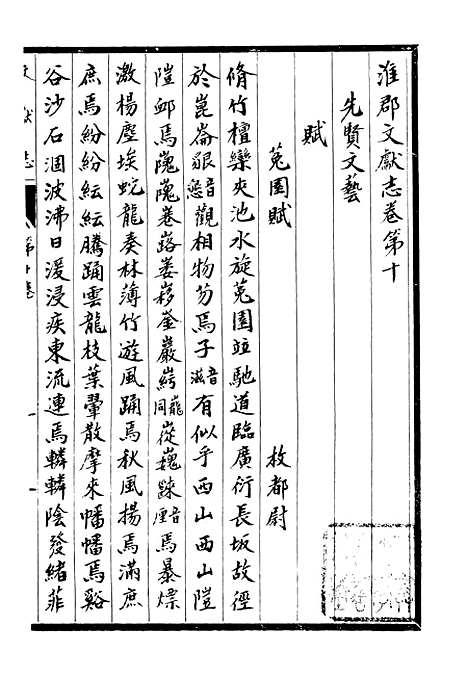 淮郡文獻志卷第十
先賢文藝
賦
菟園賦 枚都尉
脩竹檀欒夾池水旋菟園竝馳道臨廣衍長坂故徑
於崑崙貇音懇觀相物芴焉子音滋有似乎西山西山隑
隑卹焉隗隗巻路崣崺崟巖㟧同巃嵸巍䟽音㕓焉暴熛
激楊塵埃蛇龍奏林薄竹遊風踊焉秋風揚焉滿庶
庶焉紛紛紜紜騰踊雲龍枝葉翬散摩來幡幡焉谿
谷沙石涸波沸日湲浸疾東流連焉轔轔陰發緒菲
文獻志
第十卷
一